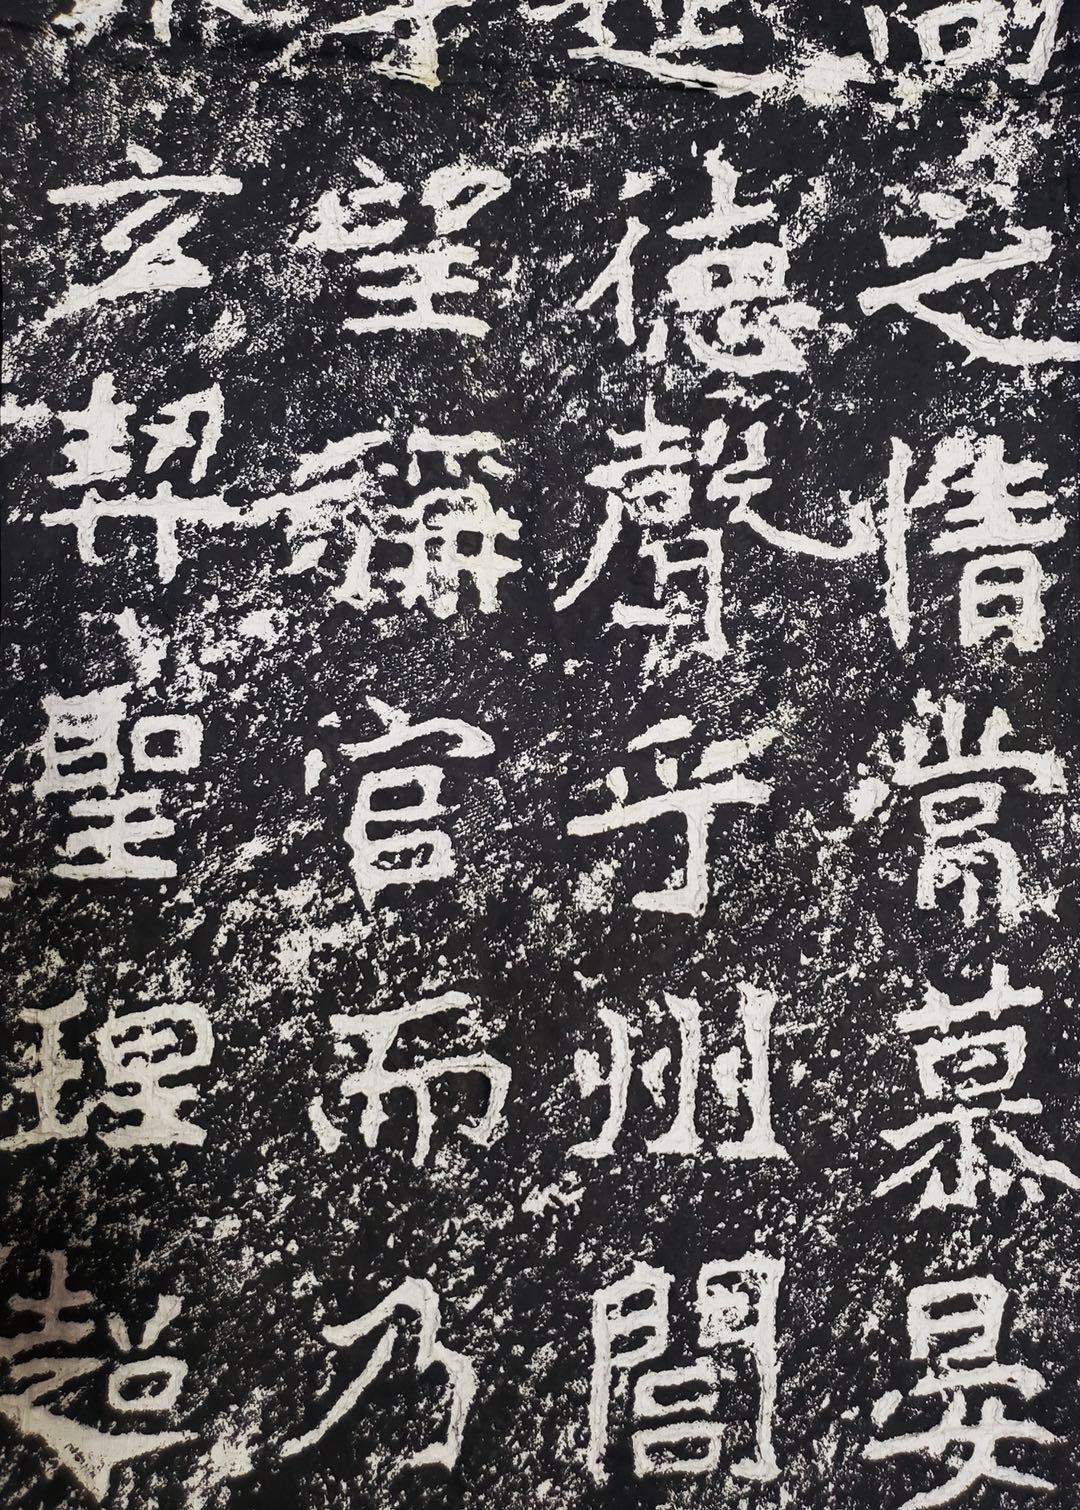 之情常慕晏
德聲乎州閭
望稱官而乃
玄契聖理超